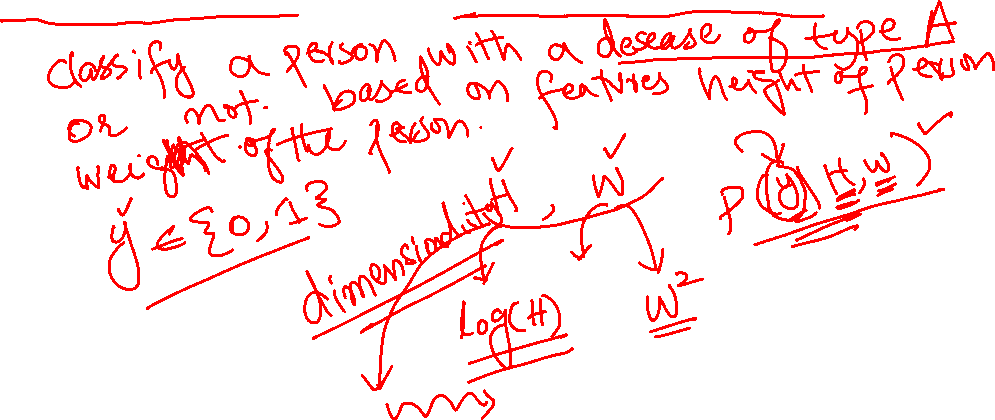 classify a person with a desease of type A
or not. based on features height of person
weight of the person.
y ∈ {0,1}
dimensionality
H, W
P(y | H, W)
Log(H)
W²